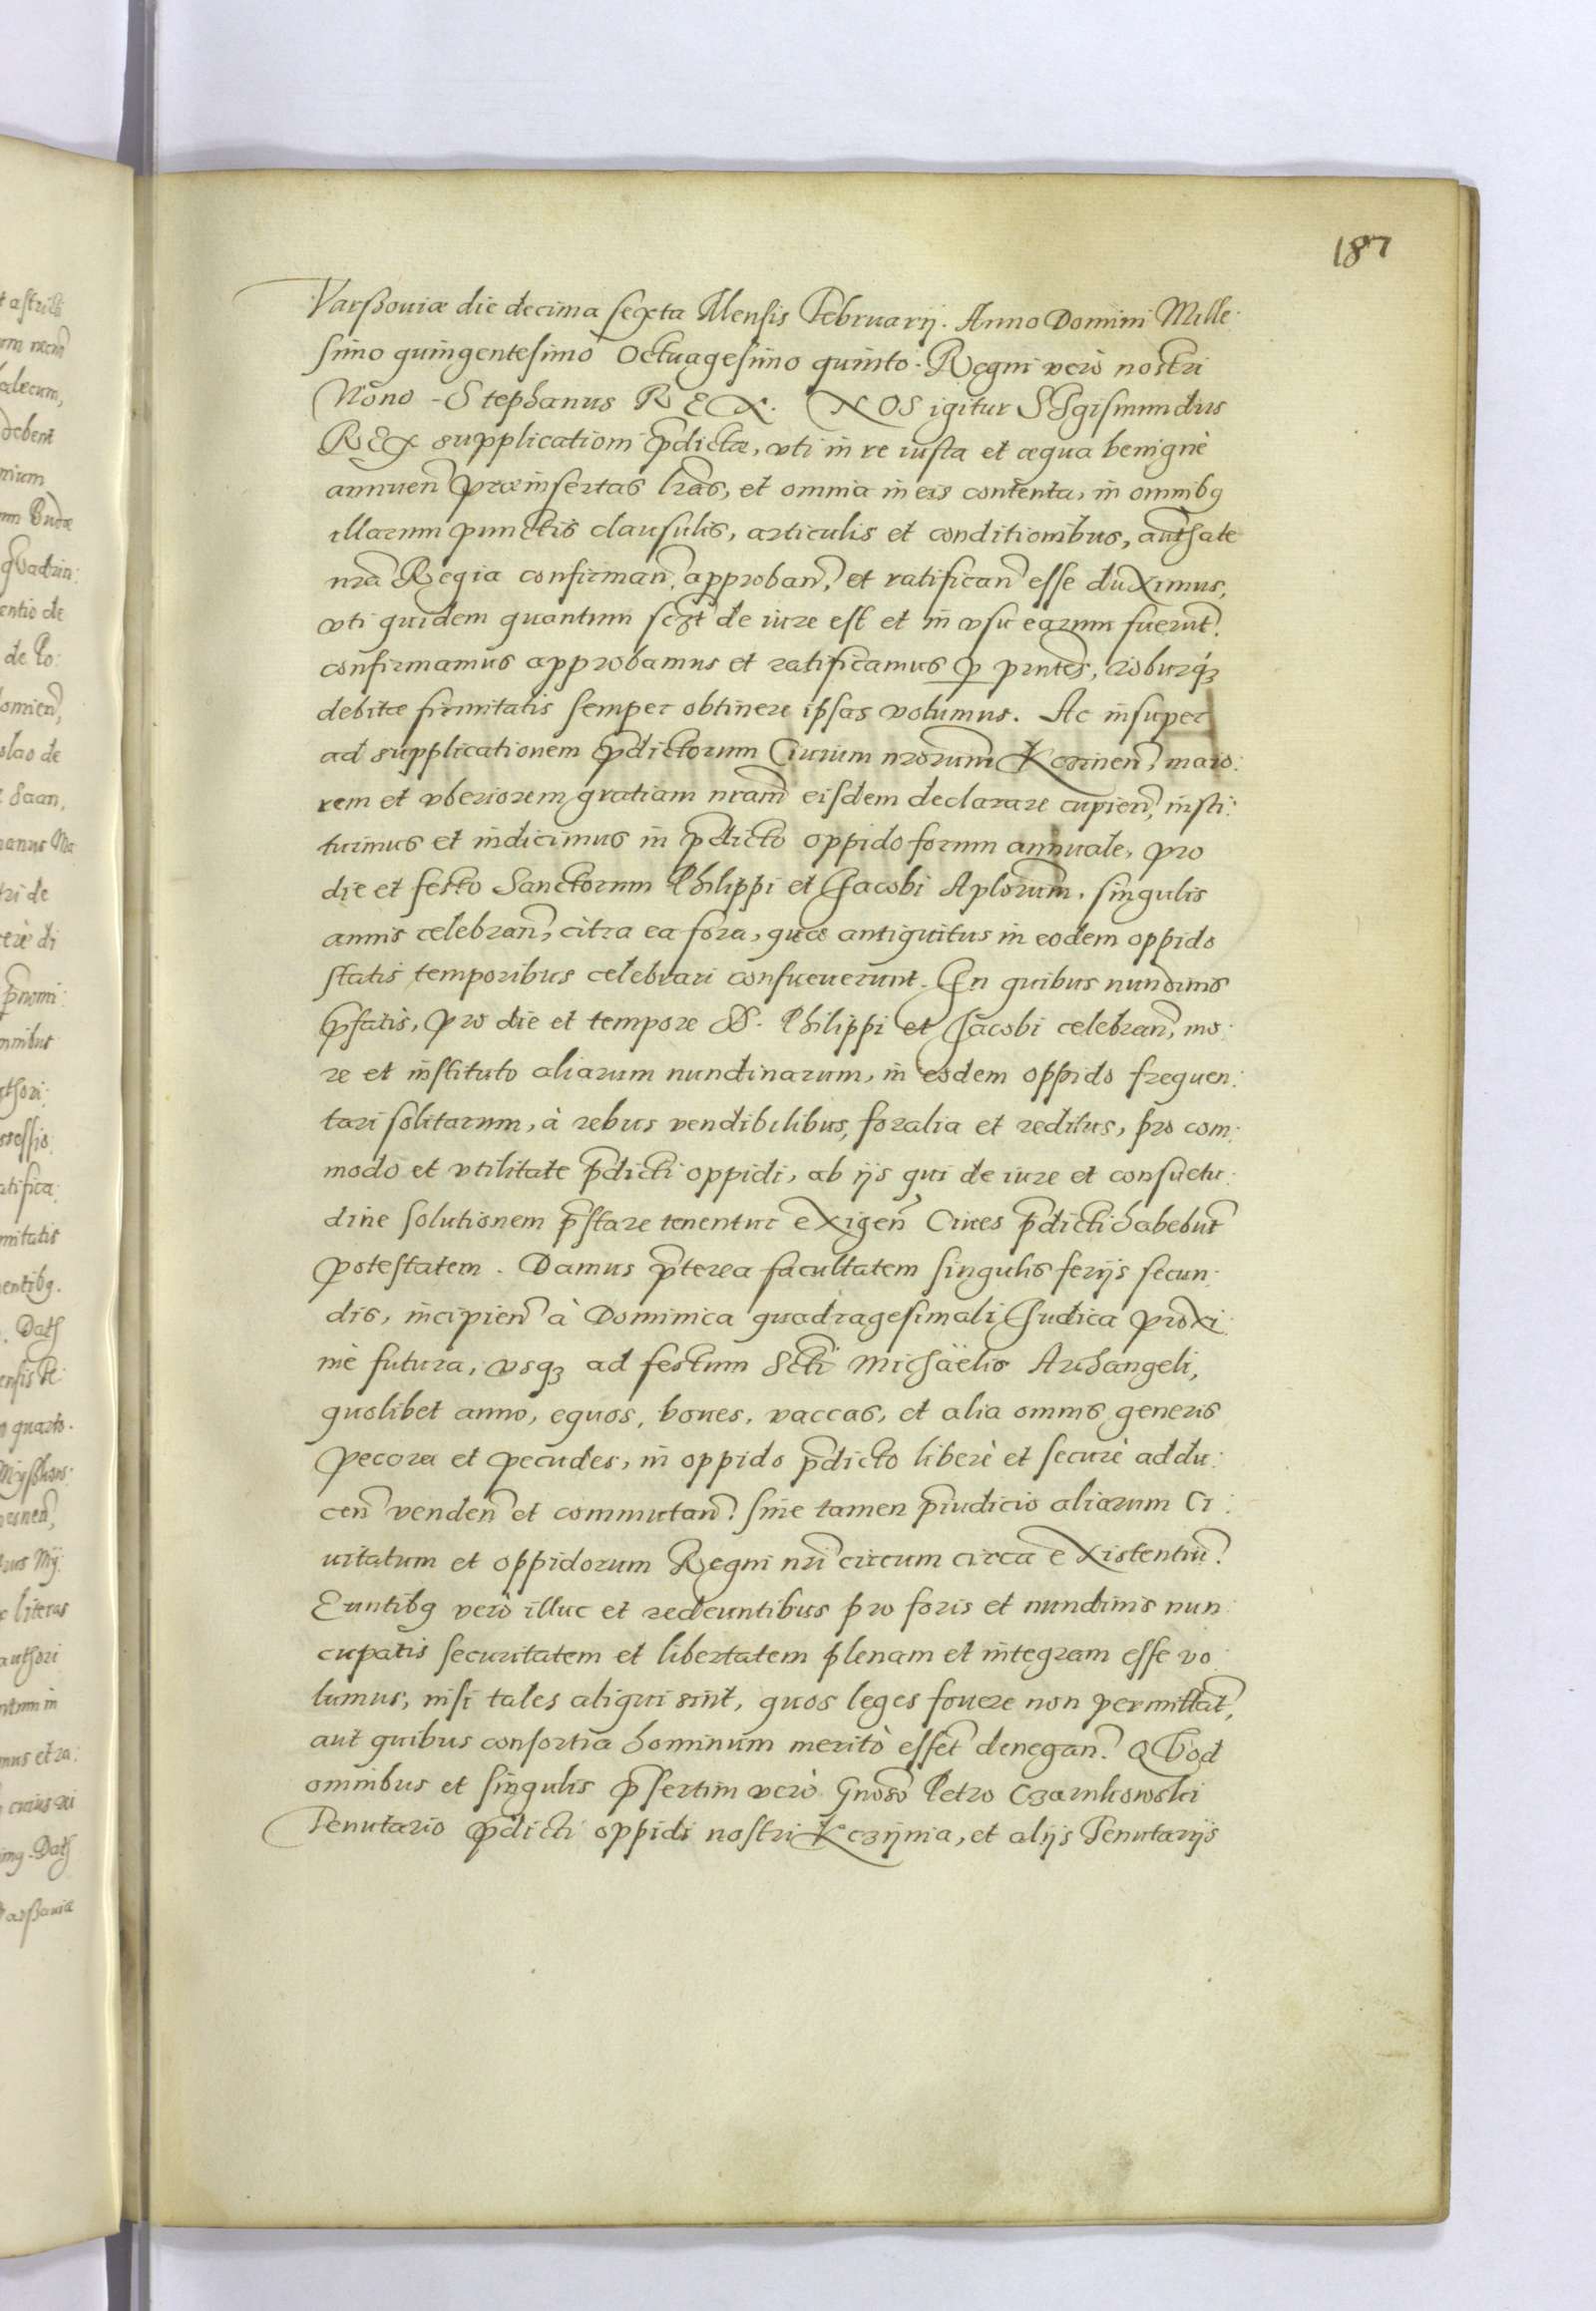 187
Varßouiæ die decima sexta Mensis Februarij. Anno Domini Mille:
simo quingentesimo Octuagesimo quinto. Regni verò nostri
Nono - Stephanus REX. NOS igitur SIgismundus
REX supplicationi p̄dictæ, vti in re iusta et æqua benignè
annuen̄ præinsertas lr̄as, et omnia in eis contenta, in omnibꝯ
illarum punctis clausulis, articulis et conditionibus, auth̄ate
nr̄a Regia confirman̄, approban̄, et ratifican̄ esse duximus,
vti quidem quantum scꝫt de iure est et in vsu earum fuerūt.
confirmamus approbamus et ratificamus ꝑ pn̄tes, roburqꝫ
debitæ firmitatis semper obtinere ipsas volumus. Ac insuper
ad supplicationem p̄dictorum Ciuium nr̄orum Kczinen̄, maio:
rem et vberiorem gratiam nr̄am eisdem declarare cupien̄, insti:
tuimus et indicimus in p̄dicto oppido forum annuale, pro
die et festo Sanctorum Philippi et Jacobi Apl̄orum, singulis
annis celebran̄, citra ea fora, quæ antiquitus in eodem oppido
statis temporibus celebrari consueuerunt. In quibus nundinis
p̄fatis, pro die et tempore SS. Philippi et Jacobi celebran̄, mo:
re et instituto aliarum nundinarum, in eodem oppido frequen:
tari solitarum, à rebus vendibilibus, foralia et reditus, pro com:
modo et vtilitate p̄dicti oppidi, ab ijs qui de iure et consuetu:
dine solutionem p̄stare tenentur exigen̄ Ciues p̄dicti habebūt
potestatem. Damus p̄terea facultatem singulis ferijs secun:
dis, incipien̄ à Dominica quadragesimali Judica proxi:
mè futura, vsqꝫ ad festum Sc̄ti Michaëlis Archangeli,
quolibet anno, equos, boues, vaccas, et alia omnis generis
pecora et pecudes, in oppido p̄dicto liberè et securè addu:
cen̄ venden̄ et commutan̄. sine tamen p̄iudicio aliarum Ci:
uitatum et oppidorum Regni nr̄i circum circa existentiū.
Euntibꝯ verò illuc et redeuntibus pro foris et nundinis nun:
cupatis securitatem et libertatem plenam et integram esse vo:
lumus, nisi tales aliqui sint, quos leges fouere non permittāt,
aut quibus consortia hominum meritò essēt denegan̄. QVod
omnibus et singulis p̄sertim verò Gn̄oso Petro Czarnkowski
Tenutario p̄dicti oppidi nostri Kczijnia, et alijs Tenutarijs